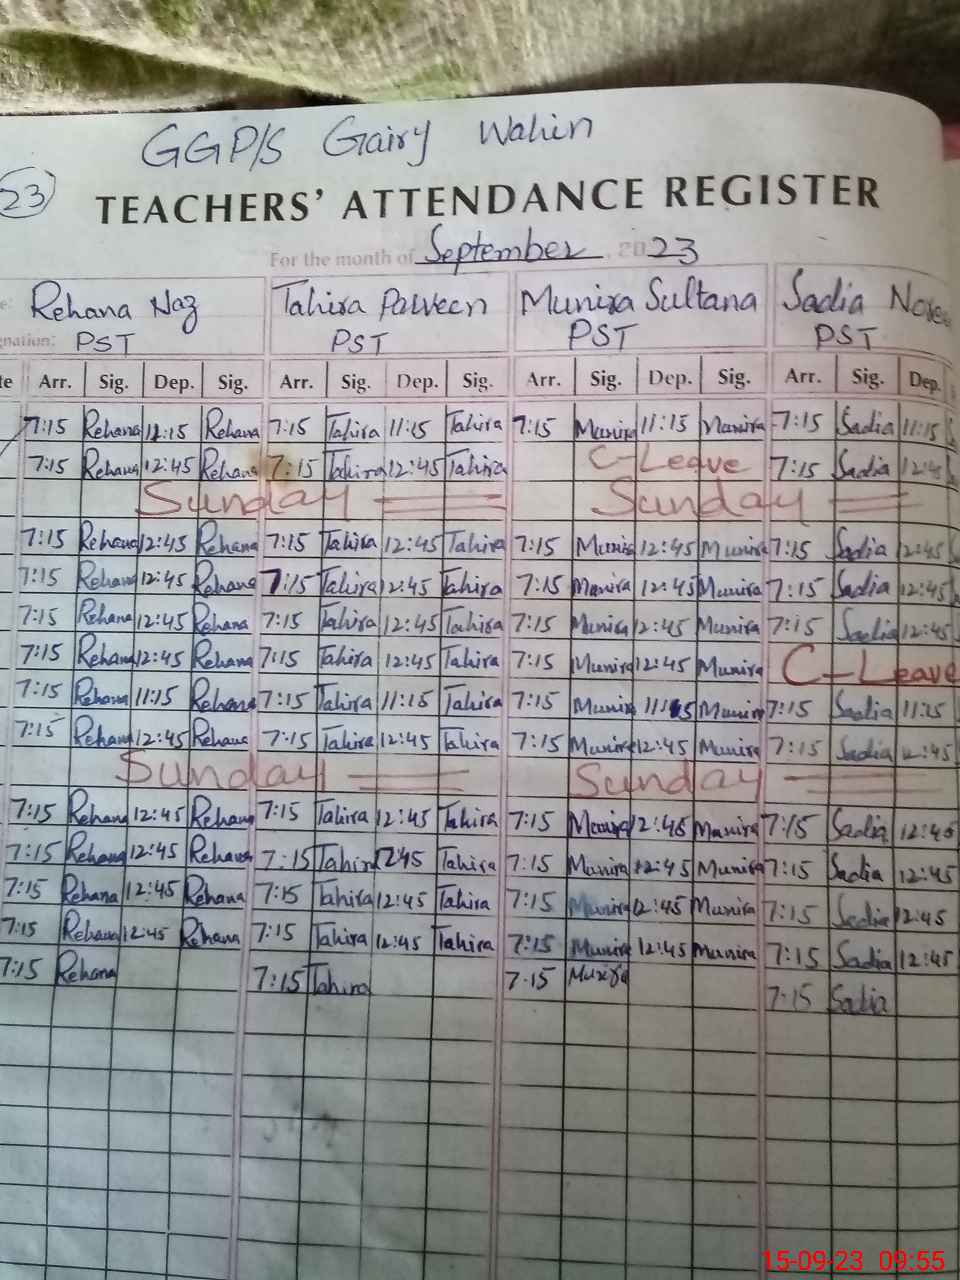 GGP/S Gairy Wahin
23
TEACHERS' ATTENDANCE REGISTER
For the month of September, 2023
Rehana Naz Tahira Parveen Munira Sultana Sadia
nation: PST PST PST PST
te Arr. Sig. Dep. Sig. Arr. Sig. Dep. Sig. Arr. Sig. Dep. Sig. Arr. Sig. Dep.
7:15 Rehana 11:15 Rehana 7:15 Tahira 11:15 Tahira 7:15 Munira 11:15 Munira 7:15 Sadia 11:15
7:15 Rehana 12:45 Rehana 7:15 Tahira 12:45 Tahira C-Leave 7:15 Sadia 12:45
Sunday Sunday
7:15 Rehana 12:45 Rehana 7:15 Tahira 12:45 Tahira 7:15 Munira 12:45 Munira 7:15 Sadia 12:45
7:15 Rehana 12:45 Rehana 7:15 Tahira 12:45 Tahira 7:15 Munira 12:45 Munira 7:15 Sadia 12:45
7:15 Rehana 12:45 Rehana 7:15 Tahira 12:45 Tahira 7:15 Munira 12:45 Munira 7:15 Sadia 12:45
7:15 Rehana 12:45 Rehana 7:15 Tahira 12:45 Tahira 7:15 Munira 12:45 Munira C-Leave
7:15 Rehana 11:15 Rehana 7:15 Tahira 11:15 Tahira 7:15 Munira 11:15 Munira 7:15 Sadia 11:15
7:15 Rehana 12:45 Rehana 7:15 Tahira 12:45 Tahira 7:15 Munira 12:45 Munira 7:15 Sadia 12:45
Sunday Sunday
7:15 Rehana 12:45 Rehana 7:15 Tahira 12:45 Tahira 7:15 Munira 12:45 Munira 7:15 Sadia 12:45
7:15 Rehana 12:45 Rehana 7:15 Tahira 12:45 Tahira 7:15 Munira 12:45 Munira 7:15 Sadia 12:45
7:15 Rehana 12:45 Rehana 7:15 Tahira 12:45 Tahira 7:15 Munira 12:45 Munira 7:15 Sadia 12:45
7:15 Rehana 12:45 Rehana 7:15 Tahira 12:45 Tahira 7:15 Munira 12:45 Munira 7:15 Sadia 12:45
7:15 Rehana 7:15 Tahira 7:15 Munira 7:15 Sadia
15-09-23 09:55